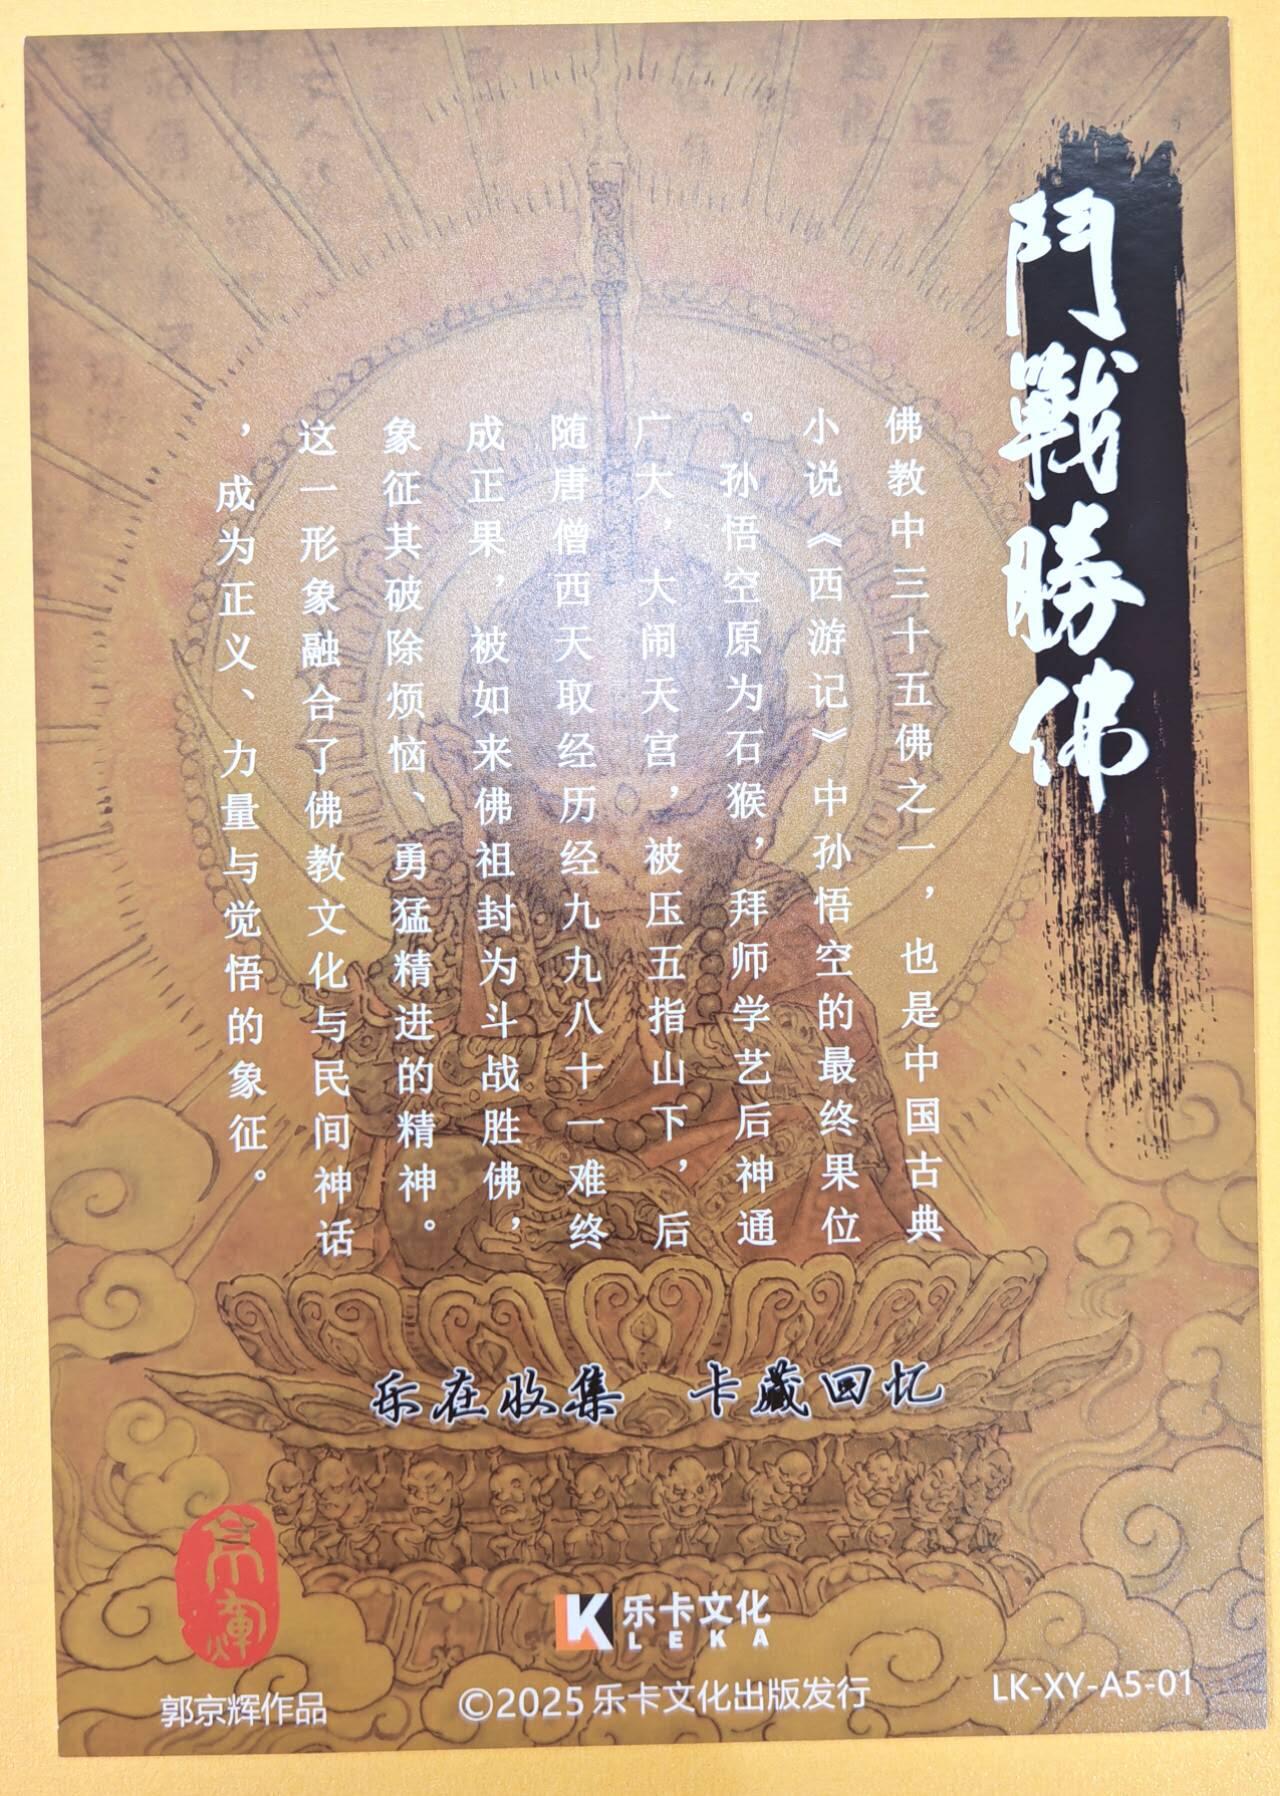 鬥戰勝佛
佛教中三十五佛之一，也是中国古典
小说《西游记》中孙悟空的最终果位
。孙悟空原为石猴，拜师学艺后神通
广大，大闹天宫，被压五指山下，后
随唐僧西天取经历经九九八十一难终
成正果，被如来佛祖封为斗战胜佛，
象征其破除烦恼、勇猛精进的精神。
这一形象融合了佛教文化与民间神话
，成为正义、力量与觉悟的象征。
乐在收集 卡藏回忆
京辉
LK 乐卡文化
LEKA
郭京辉作品
©2025乐卡文化出版发行
LK-XY-A5-01